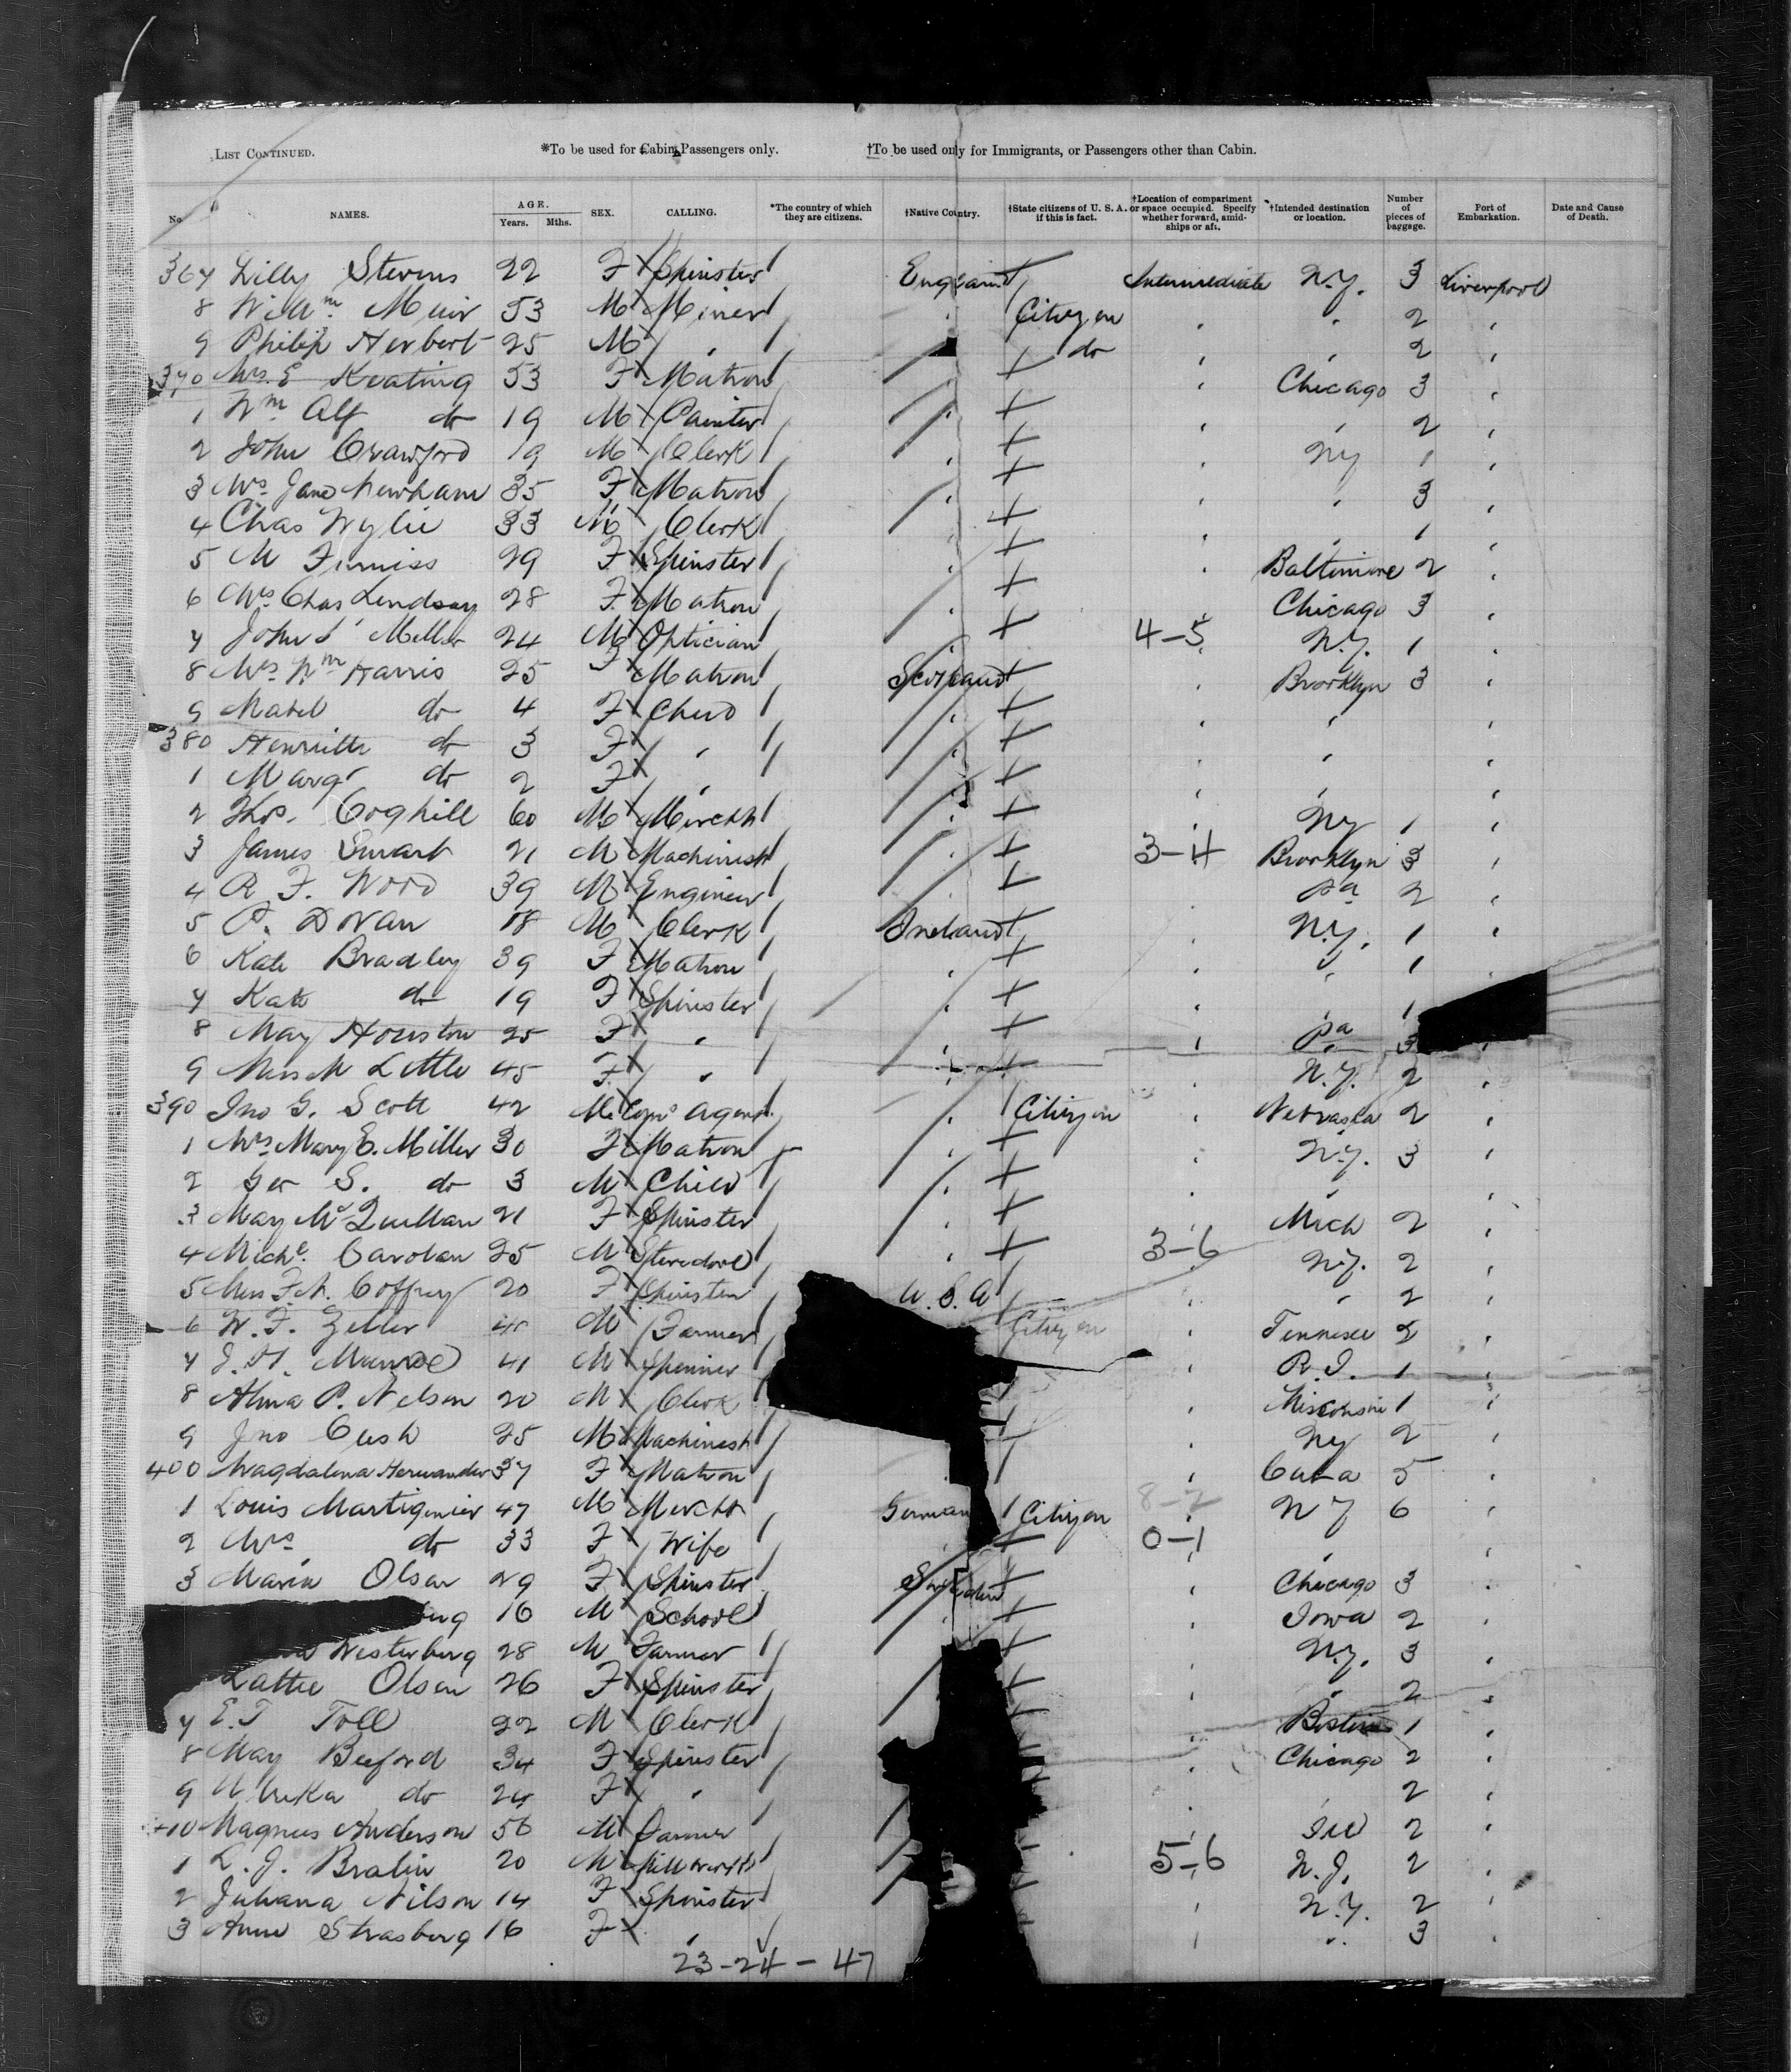 LIST CONTINUED. *To be used for Cabin Passengers only. †To be used only for Immigrants, or Passengers other than Cabin.
No. NAMES. AGE. Years. Mths. SEX. CALLING. *The country of which they are citizens. †Native Country. †State citizens of U. S. A. if this is fact. †Location of compartment or space occupied. Specify whether forward, amidships or aft. †Intended destination or location. Number of pieces of baggage. Port of Embarkation. Date and Cause of Death.
367 Lilly Stevens 22 F Spinster England Intermediate N.Y. 3 Liverpool
8 Muir 53 M Miner Citizen 2
9 Philip Herbert 25 M do 2
370 Mrs. E Keating 53 F Matron Chicago 3
1 Wm Alf do 19 M Painter 2
2 John Crawford 19 M Clerk NY 1
3 Mrs. Jane Newham 35 F Matron 3
4 Chas Wylie 33 M Clerk 1
5 M Furniss 29 F Spinster Baltimore 2
6 Mrs Chas Lindsay 28 F Matron Chicago 3
7 John S Miller 24 M Optician 4-5 N.Y. 1
8 Mrs. Wm Harris 25 F Matron Scotland Brooklyn 3
9 Mabel do 4 F Child
380 Henritta do 3 F
1 Margt do 2 F
2 Thos. Coghill 60 M Mercht NY 1
3 James Smart 21 M Machinist 3-4 Brooklyn 3
4 R F. Wood 39 M Engineer Pa 2
5 P. Dolan 18 M Clerk Ireland N.Y. 1
6 Kate Bradley 39 F Matron 1
7 Kate do 19 F Spinster 1
8 May Houston 25 F Pa 3
9 Miss M Little 45 F N.Y. 2
390 Jno G. Scott 42 M Agent Citizen Nebraska 2
1 Mrs Mary E. Miller 30 F Matron N.Y. 3
2 Geo S. do 3 M Child
3 May McQuillan 21 F Spinster Mich 2
4 Michl. Carolan 25 M Stevedore 3-6 N.Y. 2
5 Miss Coffrey 20 F Spinster U.S.A 2
6 W. F. Zeller M Farmer Citizen Tennesee 2
7 J. H. Munroe 41 M Spinner R.I. 1
8 Alma P. Nelson 20 M Clerk Wisconsin 1
9 Jno Cush 25 M Machinist NY 2
400 Magdalena Hernandez 37 F Matron Cuba 5
1 Louis Martignier 47 M Mercht German Citizen NY 6
2 Mrs do 33 F Wife 0-1
3 Maria Olsen 29 F Spinster Sweden Chicago 3
berg 16 M School Iowa 2
Westerberg 28 M Farmer N.Y. 3
Lattie Olsen 26 F Spinster 2
7 E.T Toll 22 M Clerk Boston 1
8 May Beeford 34 F Spinster Chicago 2
9 Ulrika do 24 F 2
410 Magnus Anderson 56 M Farmer Ill 2
1 L. J. Bralin 20 M 5-6 N.J. 2
2 Juliana Nilson 14 F Spinster N.Y. 2
3 Anne Strasberg 16 F 3
23-24-47